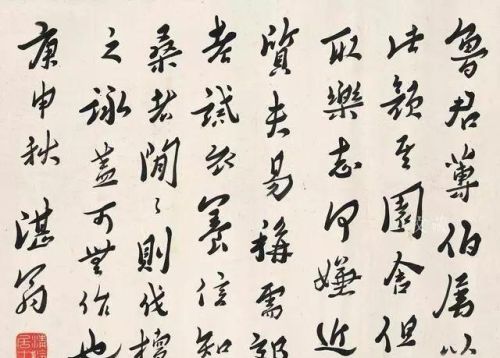 魯君蓴伯屬以
此顏其園舍但
取樂志何嫌近
質夫易稱需
養信知
桑者閒〻則伐檀
之詠蓋可無作也
庚申秋 湛翁